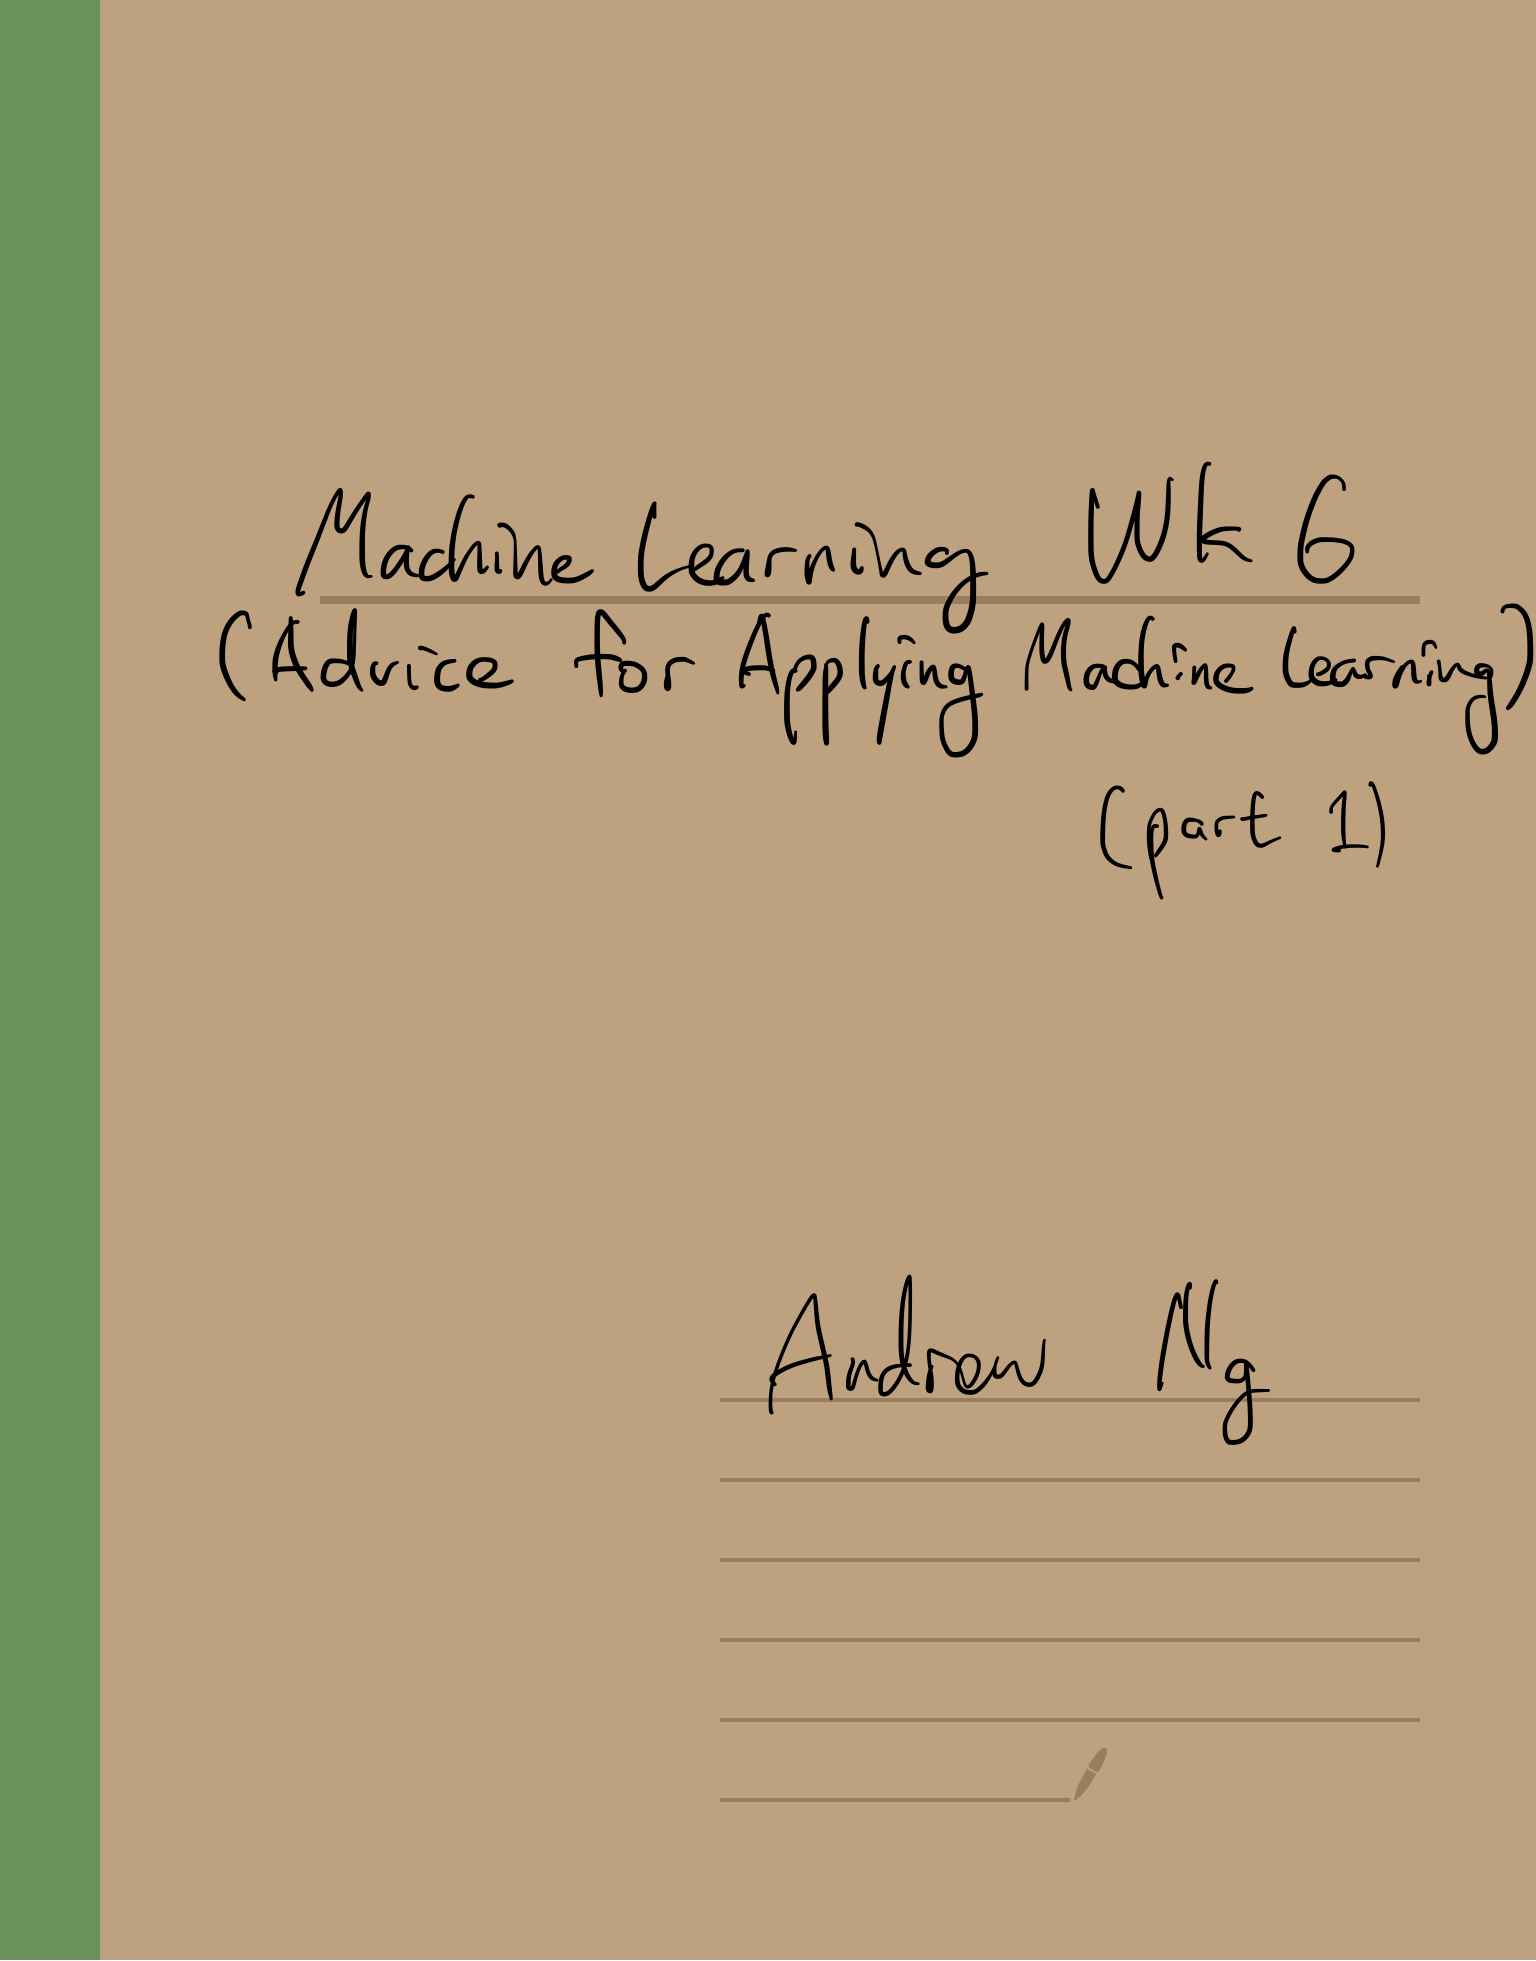 Machine Learning Wk 6
(Advice for Applying Machine Learning)
(part 1)
Andrew Ng